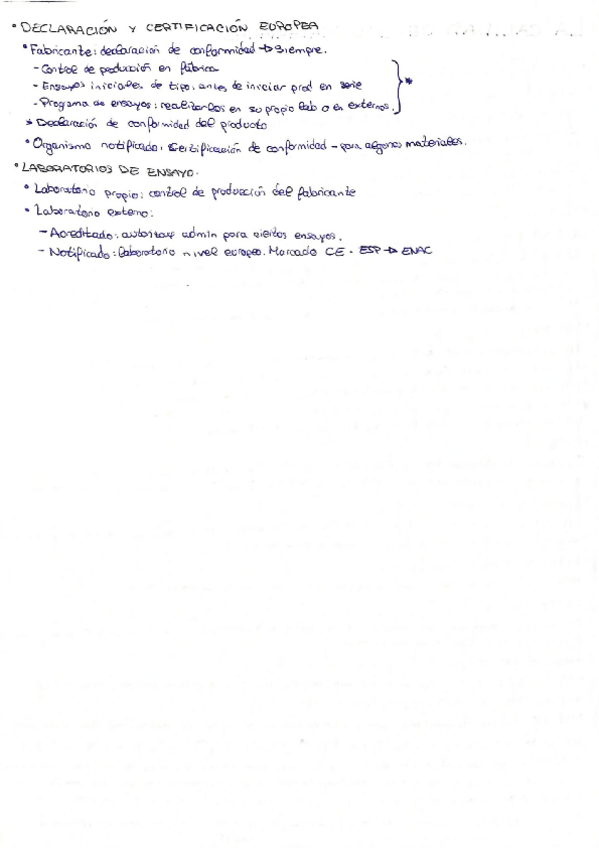 • DECLARACIÓN Y CERTIFICACIÓN EUROPEA
• Fabricante: declaración de conformidad → siempre.
- Control de producción en fábrica
- Ensayos iniciales de tipo: antes de iniciar prod en serie
- Programa de ensayos: realizarlos en su propio lab o en externos. } *
* Declaración de conformidad del producto
• Organismo notificado: certificación de conformidad - para algunos materiales.
• LABORATORIOS DE ENSAYO.
• Laboratorio propio: control de producción del fabricante
• Laboratorio externo:
- Acreditado: autoriza admin para ciertos ensayos.
- Notificado: laboratorio nivel europeo. Marcado CE. ESP → ENAC